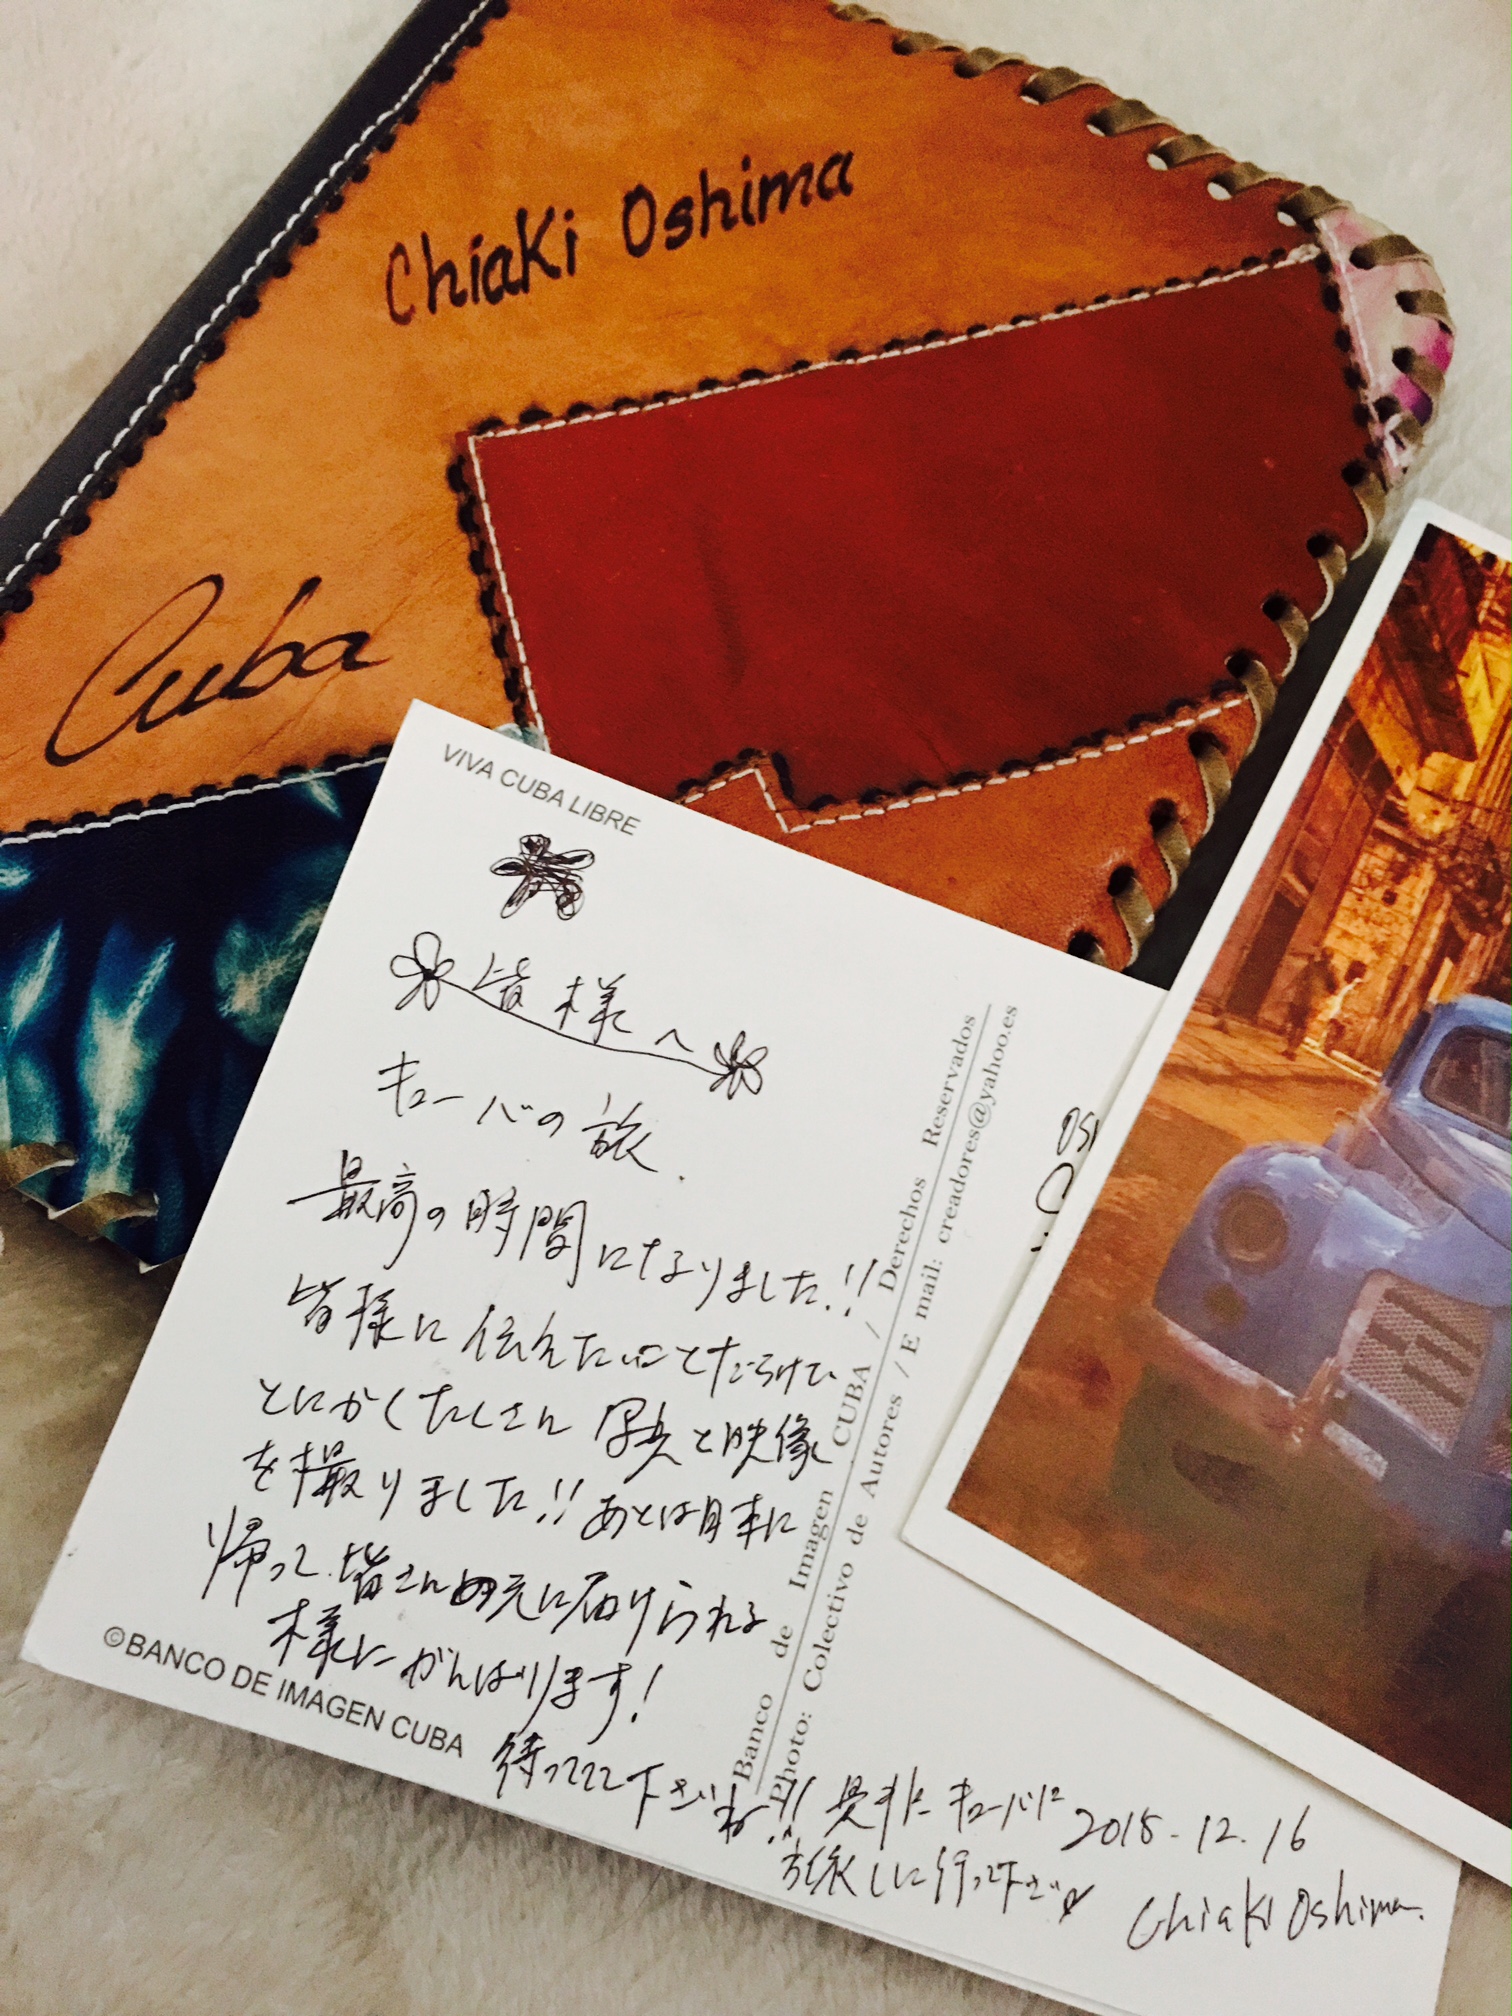 Chiaki Oshima
Cuba
VIVA CUBA LIBRE
皆様へ
キューバの旅.
最高の時間になりました!!
皆様に伝えたいことだらけで
とにかくたくさん写真と映像
を撮りました!! あとは日本に
帰って皆さんの元に届けられる
様にがんばります!
待ってて下さいね!! 是非キューバに
旅しに行って下さい
2015.12.16
Chiaki Oshima.
©BANCO DE IMAGEN CUBA
Banco de Imagen CUBA / Derechos Reservados
Photo: Colectivo de Autores / E mail: creadores@yahoo.es